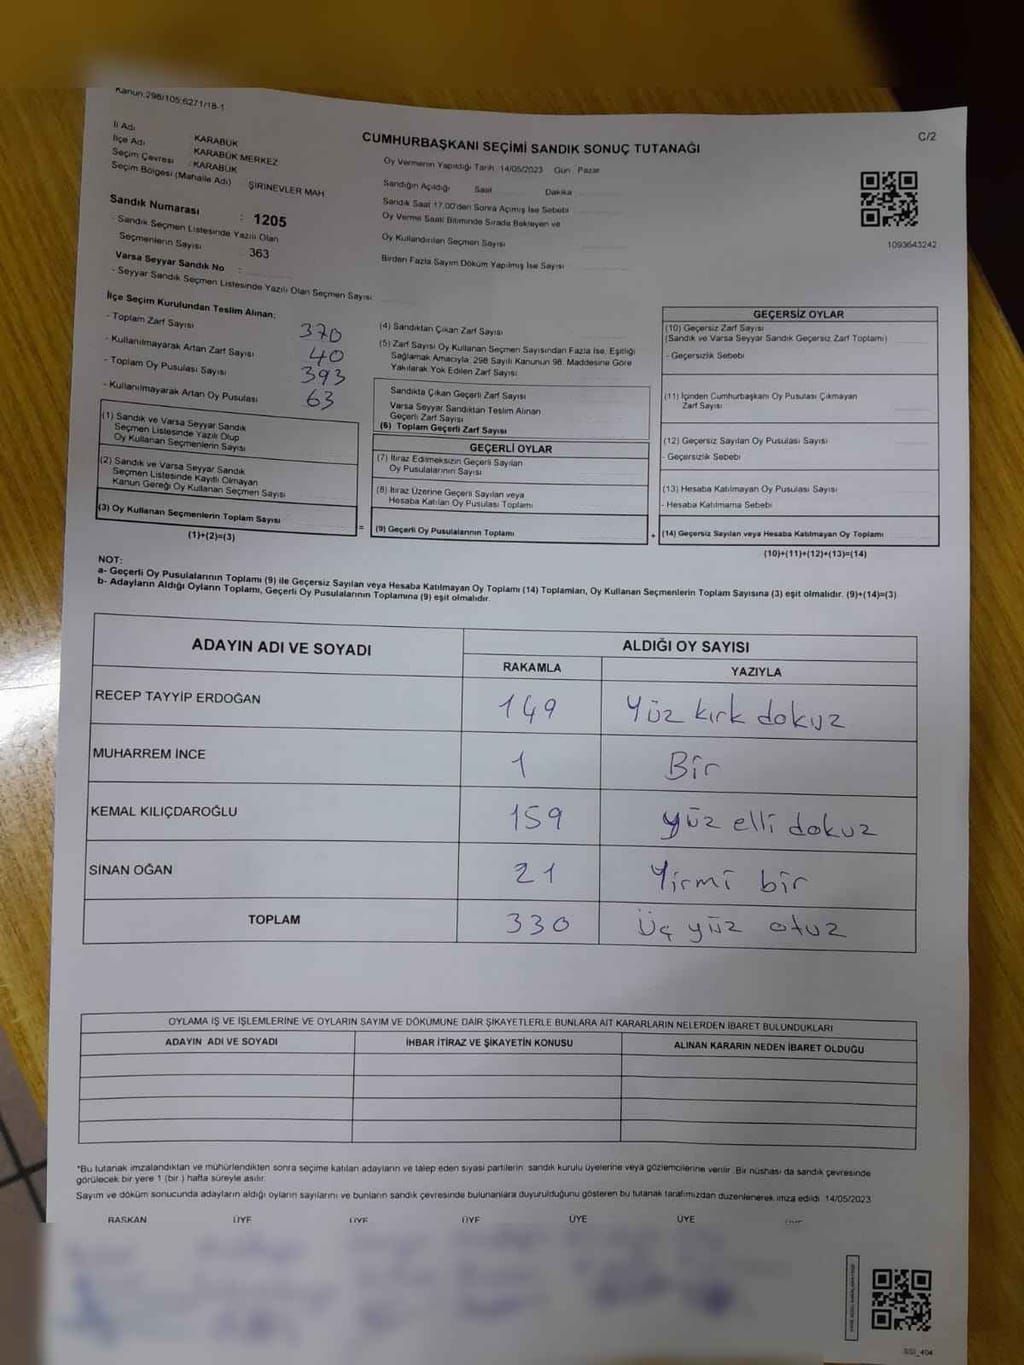 Kanun:298/105;6271/18-1
C/2
CUMHURBAŞKANI SEÇİMİ SANDIK SONUÇ TUTANAĞI
İl Adı KARABÜK
İlçe Adı KARABÜK MERKEZ
Seçim Çevresi : KARABÜK
Seçim Bölgesi (Mahalle Adı) ŞİRİNEVLER MAH
Oy Vermenin Yapıldığı Tarih: 14/05/2023 Gün : Pazar
Sandığın Açıldığı Saat Dakika
Sandık Saat 17.00'den Sonra Açılmış İse Sebebi
Oy Verme Saati Bitiminde Sırada Bekleyen ve
Oy Kullandırılan Seçmen Sayısı
Birden Fazla Sayım Döküm Yapılmış İse Sayısı
1093643242
Sandık Numarası : 1205
- Sandık Seçmen Listesinde Yazılı Olan
Seçmenlerin Sayısı 363
Varsa Seyyar Sandık No :
- Seyyar Sandık Seçmen Listesinde Yazılı Olan Seçmen Sayısı:
İlçe Seçim Kurulundan Teslim Alınan;
- Toplam Zarf Sayısı 370
- Kullanılmayarak Artan Zarf Sayısı 40
- Toplam Oy Pusulası Sayısı 393
- Kullanılmayarak Artan Oy Pusulası 63
(1) Sandık ve Varsa Seyyar Sandık
Seçmen Listesinde Yazılı Olup
Oy Kullanan Seçmenlerin Sayısı
(2) Sandık ve Varsa Seyyar Sandık
Seçmen Listesinde Kayıtlı Olmayan
Kanun Gereği Oy Kullanan Seçmen Sayısı
(3) Oy Kullanan Seçmenlerin Toplam Sayısı
(1)+(2)=(3)
(4) Sandıktan Çıkan Zarf Sayısı
(5) Zarf Sayısı Oy Kullanan Seçmen Sayısından Fazla İse, Eşitliği
Sağlamak Amacıyla, 298 Sayılı Kanunun 98. Maddesine Göre
Yakılarak Yok Edilen Zarf Sayısı
Sandıkta Çıkan Geçerli Zarf Sayısı
Varsa Seyyar Sandıktan Teslim Alınan
Geçerli Zarf Sayısı
(6) Toplam Geçerli Zarf Sayısı
GEÇERLİ OYLAR
(7) İtiraz Edilmeksizin Geçerli Sayılan
Oy Pusulalarının Sayısı
(8) İtiraz Üzerine Geçerli Sayılan veya
Hesaba Katılan Oy Pusulası Toplamı
=
(9) Geçerli Oy Pusulalarının Toplamı
GEÇERSİZ OYLAR
(10) Geçersiz Zarf Sayısı
(Sandık ve Varsa Seyyar Sandık Geçersiz Zarf Toplamı)
- Geçersizlik Sebebi
(11) İçinden Cumhurbaşkanı Oy Pusulası Çıkmayan
Zarf Sayısı
(12) Geçersiz Sayılan Oy Pusulası Sayısı
- Geçersizlik Sebebi
(13) Hesaba Katılmayan Oy Pusulası Sayısı
- Hesaba Katılmama Sebebi
+
(14) Geçersiz Sayılan veya Hesaba Katılmayan Oy Toplamı
(10)+(11)+(12)+(13)=(14)
NOT:
a- Geçerli Oy Pusulalarının Toplamı (9) ile Geçersiz Sayılan veya Hesaba Katılmayan Oy Toplamı (14) Toplamları, Oy Kullanan Seçmenlerin Toplam Sayısına (3) eşit olmalıdır. (9)+(14)=(3)
b- Adayların Aldığı Oyların Toplamı, Geçerli Oy Pusulalarının Toplamına (9) eşit olmalıdır.
ADAYIN ADI VE SOYADI ALDIĞI OY SAYISI
RAKAMLA YAZIYLA
RECEP TAYYİP ERDOĞAN 149 Yüz kırk dokuz
MUHARREM İNCE 1 Bir
KEMAL KILIÇDAROĞLU 159 yüz elli dokuz
SİNAN OĞAN 21 Yirmi bir
TOPLAM 330 Üç yüz otuz
OYLAMA İŞ VE İŞLEMLERİNE VE OYLARIN SAYIM VE DÖKÜMÜNE DAİR ŞİKAYETLERLE BUNLARA AİT KARARLARIN NELERDEN İBARET BULUNDUKLARI
ADAYIN ADI VE SOYADI İHBAR İTİRAZ VE ŞİKAYETİN KONUSU ALINAN KARARIN NEDEN İBARET OLDUĞU
*Bu tutanak imzalandıktan ve mühürlendikten sonra seçime katılan adayların ve talep eden siyasi partilerin sandık kurulu üyelerine veya gözlemcilerine verilir. Bir nüshası da sandık çevresinde
görülecek bir yere 1 (bir ) hafta süreyle asılır.
Sayım ve döküm sonucunda adayların aldığı oyların sayılarını ve bunların sandık çevresinde bulunanlara duyurulduğunu gösteren bu tutanak tarafımızdan düzenlenerek imza edildi. 14/05/2023
BAŞKAN ÜYE ÜYE ÜYE ÜYE ÜYE
SSI_404